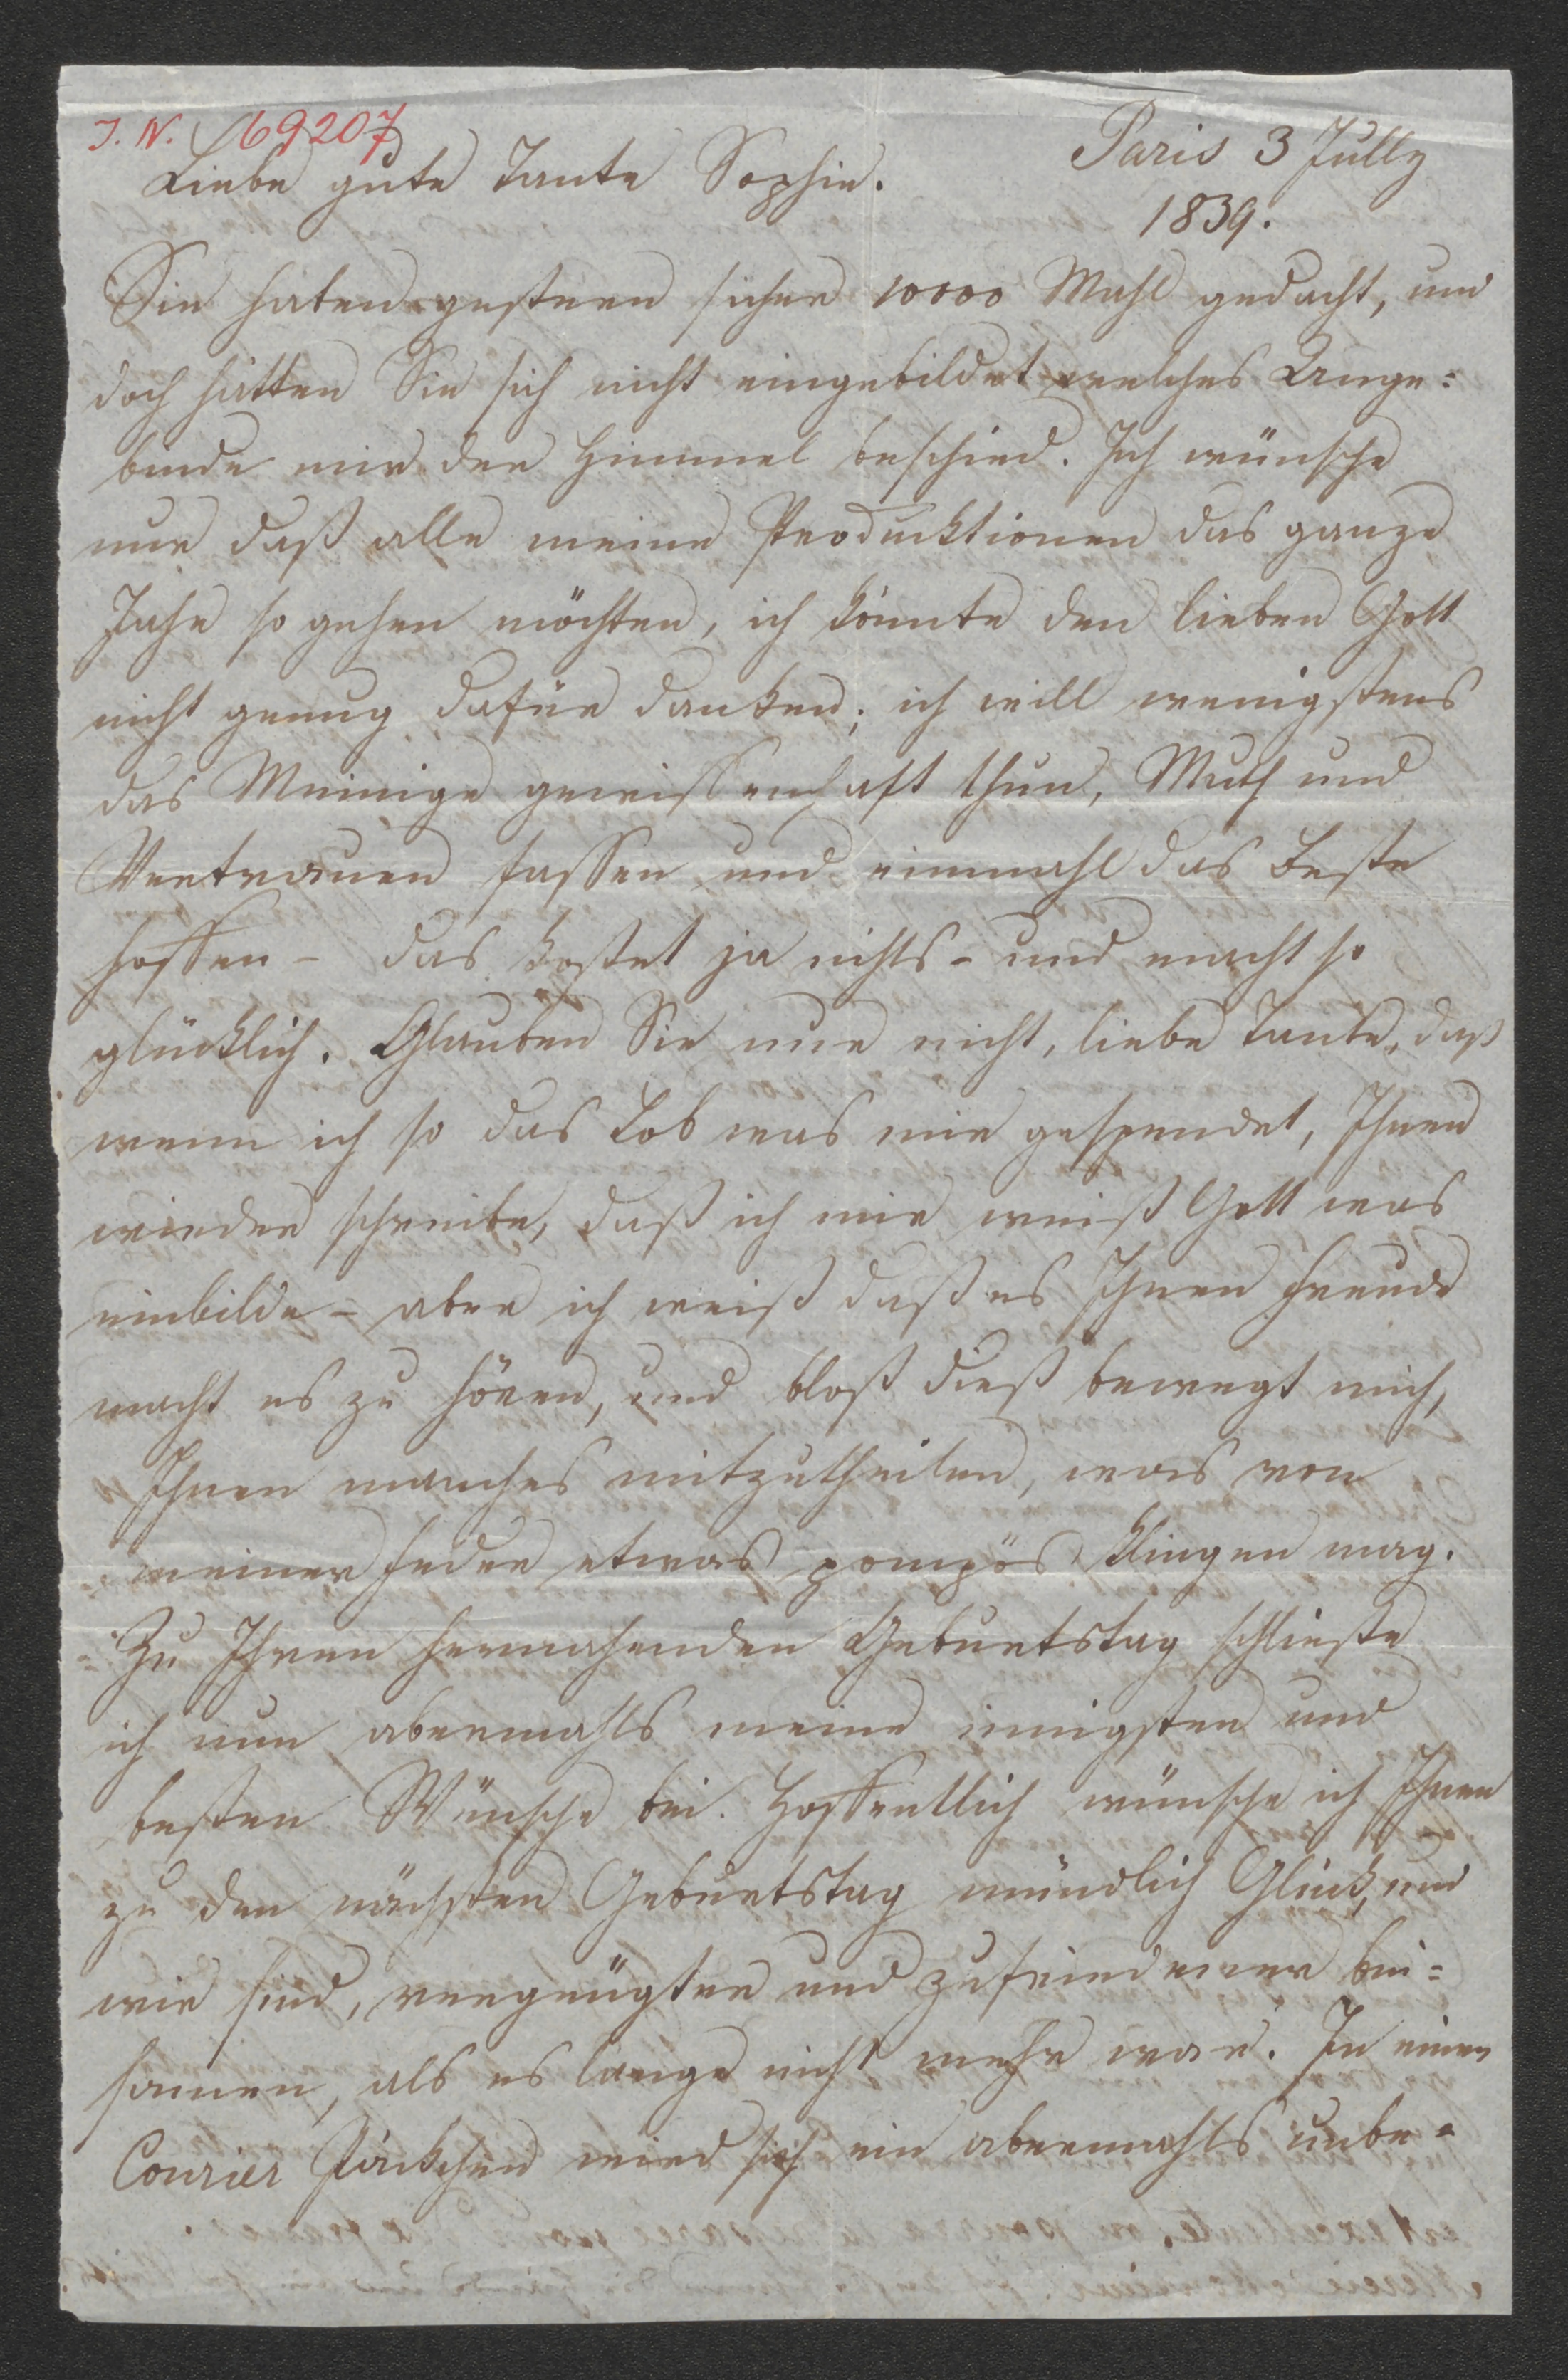 J. N. 69207
Paris 3 Jully
1839.
Liebe gute Tante Sophie.
Sie haben gestern sicher 10000 Mahl gedacht, und
doch hätten Sie sich nicht eingebildet welches Ange=
binde mir der Himmel beschied. Ich wünsche
nur daß alle meine Producktionen das ganze
Jahr so gehen möchten, ich könnte den lieben Gott
nicht genug dafür danken; ich will wenigstens
das Meinige gewissenhaft thun, Muth und
Vertrauen fassen und einmahl das Beste
hoffen – das kostet ja nichts – und macht so
glücklich. Glauben Sie nur nicht, liebe Tante, daß
wenn ich so das Lob was mir gespendet, Ihnen
wieder schreibe, daß ich mir weiß Gott was
einbilde – aber ich weiß daß es Ihnen Freude
macht es zu hören, und bloß dieß bewegt mich,
Ihnen manches mitzutheilen, was von
meiner Feder etwas pompös klingen mag.
Zu Ihren herrnahenden Geburtstag schließe
ich nun abermahls meine innigsten und
besten Wünsche bei. Hoffentlich wünsche ich Ihnen
zu den nächsten Geburtstag mündlich Glück, und
wir sind, vergnügter und zufriedener bei=
samen, als es lange nicht mehr war. In einen
Courier Päckchen wird sich ein abermahls unbe=